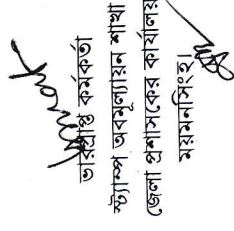 ভারপ্রাপ্ত কর্মকর্তা
স্ট্যাম্প অবমূল্যায়ন শাখা
জেলা প্রশাসকের কার্যালয়
ময়মনসিংহ।